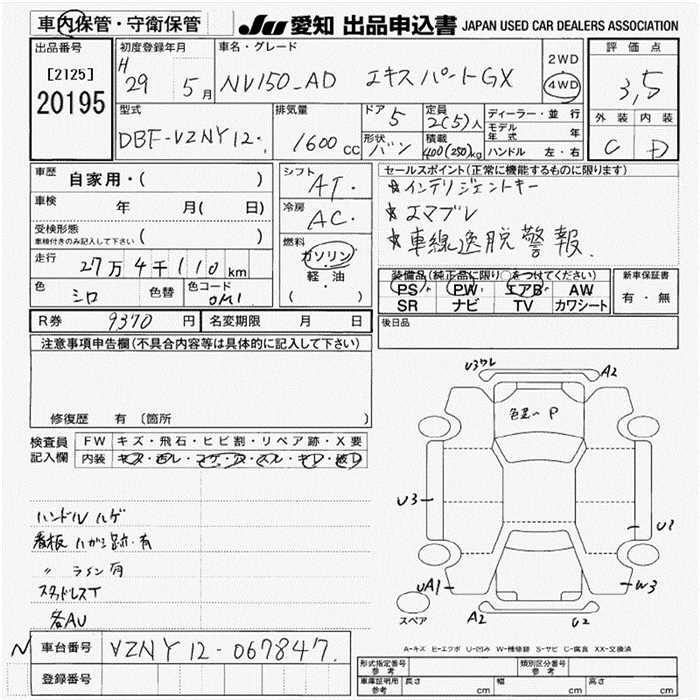 車内保管・守衛保管
JU 愛知 出品申込書 JAPAN USED CAR DEALERS ASSOCIATION
出品番号
[2125]
20195
初度登録年月
H 29 5月
車名・グレード
NV150_AD エキスパートGX
2WD
4WD
評価点
3,5
外装 内装
C D
型式
DBF-VZNY12.
排気量
1600cc
ドア 5
定員 2(5)人
形状 バン
積載 400(250)kg
ディーラー・並行
モデル年式 年
ハンドル 左・右
車歴 自家用・( )
車検 年 月( 日)
受検形態
車検付きのみ記入して下さい ( )
走行 27万4千110km
色 シロ 色替 色コード OM1
シフト AT.
冷房 AC.
燃料
ガソリン
軽・油
( )
セールスポイント(正常に機能するものに限ります)
★インテリジェントキー
★エマブレ
★車線逸脱警報.
装備品(純正品に限り○をつけてください)
PS PW エアB AW
SR ナビ TV カワシート
新車保証書
有・無
R券 9370円 名変期限 月 日
後日品
注意事項申告欄(不具合内容等は具体的に記入して下さい)
修復歴 有〔箇所
検査員記入欄
FW キズ・飛石・ヒビ割・リペア跡・X要
内装
ハンドルハゲ
看板ハガシ跡・有
〃 ライン有
スタッドレスT
各AU
U3ワレ A2
P
U3
U2
UA1
W3
A2 U2
スペア
A-キズ E-エクボ U-凹み W-補修跡 S-サビ C-腐食 XX-交換済
N 車台番号 VZNY12-067847.
登録番号
形式指定番号 参考
類別区分番号 参考
車庫証明用 参考 長さ cm 幅 cm 高さ cm